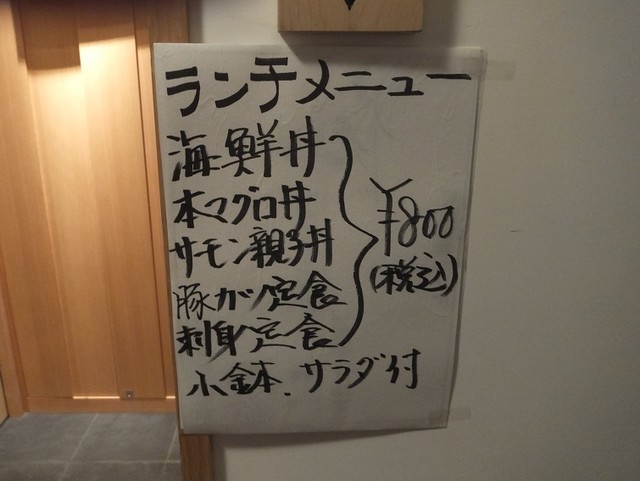 ランチメニュー
海鮮丼
本マグロ丼
サーモン親子丼
豚ガツ定食
刺身定食
¥800
(税込)
小鉢、サラダ付